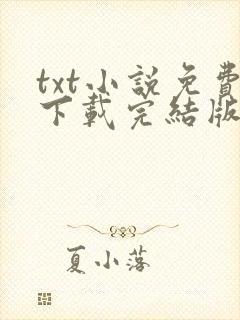 txt小說免費
下載完結版
夏小落